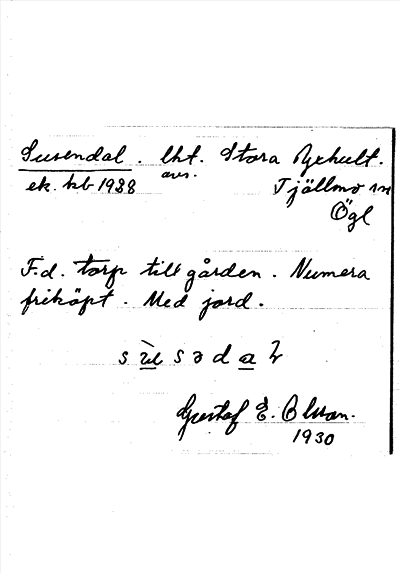 Susendal. lht. Stora Byrhult.
ek. kb 1938 avs. Tjällmo sn
Ögl
F.d. torp till gården. Numera
friköpt. Med jord.
Gustaf E. Olsson.
1930